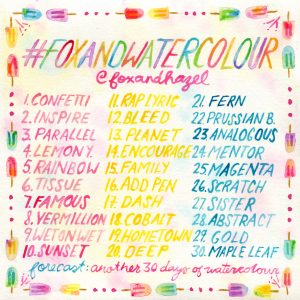 #FOXANDWATERCOLOUR
@foxandhazel
1. CONFETTI
2. INSPIRE
3. PARALLEL
4. LEMON Y.
5. RAINBOW
6. TISSUE
7. FAMOUS
8. VERMILLION
9. WET ON WET
10. SUNSET
11. RAP LYRIC
12. BLEED
13. PLANET
14. ENCOURAGE
15. FAMILY
16. ADD PEN
17. DASH
18. COBALT
19. HOMETOWN
20. DEEP
21. FERN
22. PRUSSIAN B.
23. ANALOGOUS
24. MENTOR
25. MAGENTA
26. SCRATCH
27. SISTER
28. ABSTRACT
29. GOLD
30. MAPLE LEAF
forecast: another 30 days of watercolour